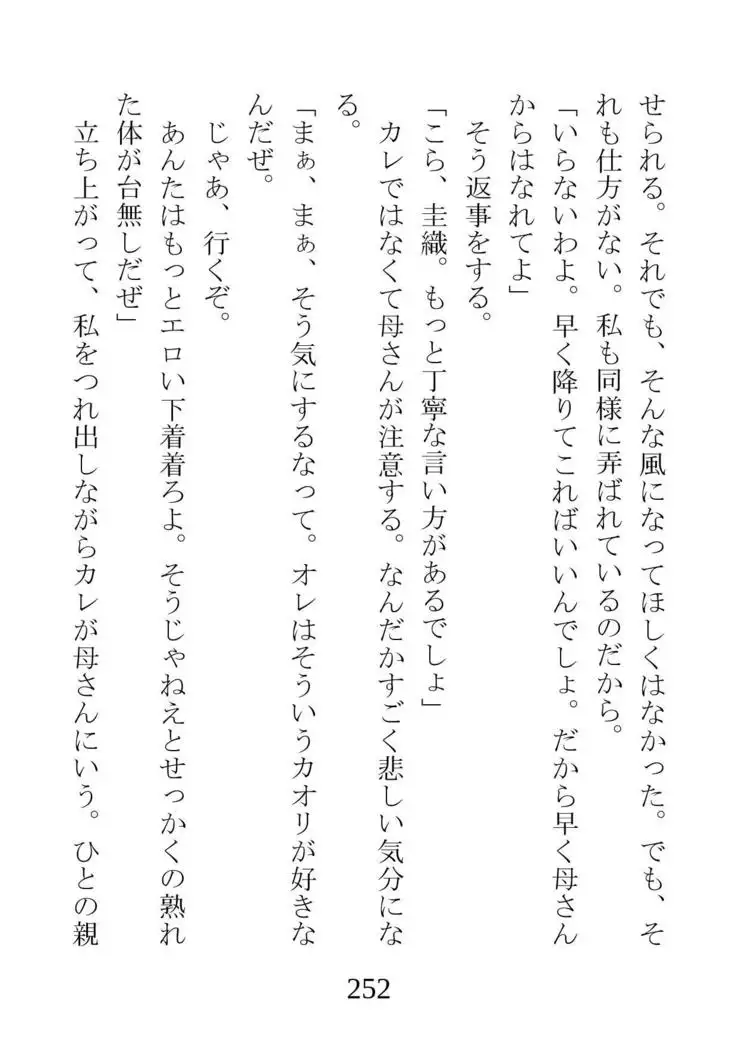 せられる。それでも、そんな風になってほしくはなかった。でも、そ
れも仕方がない。私も同様に弄ばれているのだから。
「いらないわよ。早く降りてこればいいんでしょ。だから早く母さん
からはなれてよ」
そう返事をする。
「こら、圭織。もっと丁寧な言い方があるでしょ」
カレではなくて母さんが注意する。なんだかすごく悲しい気分にな
る。
「まぁ、まぁ、そう気にするなって。オレはそういうカオリが好きな
んだぜ。
じゃあ、行くぞ。
あんたはもっとエロい下着着ろよ。そうじゃねえとせっかくの熟れ
た体が台無しだぜ」
立ち上がって、私をつれ出しながらカレが母さんにいう。ひとの親
252